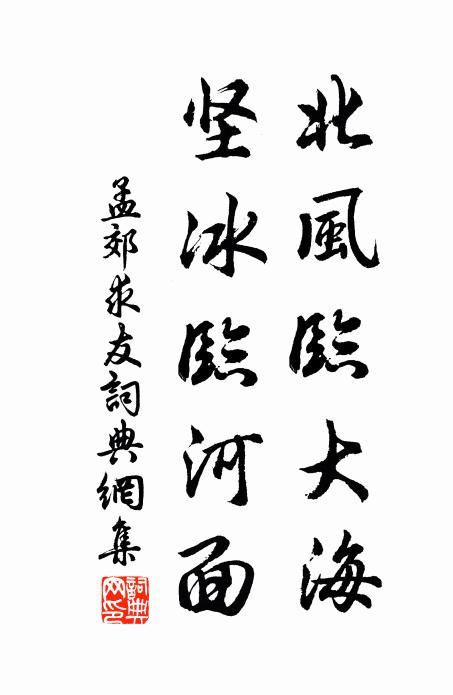 北風臨大海
坚冰臨河面
孟郊求友詞典網集
詞典網印